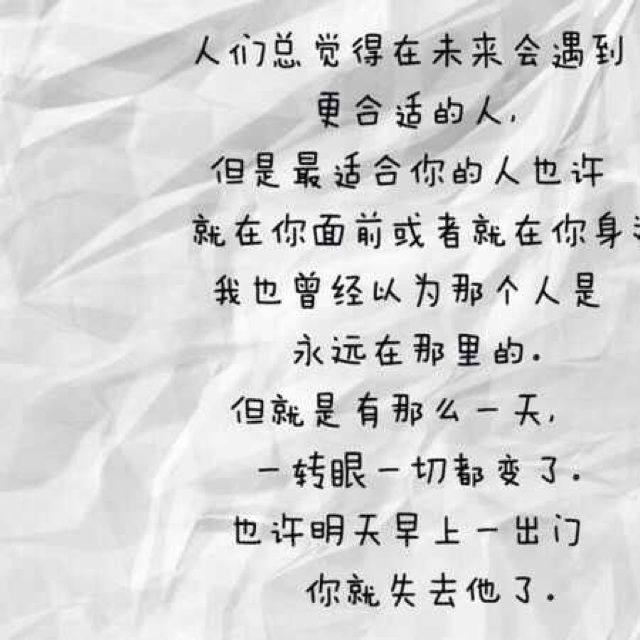 人们总觉得在未来会遇到
更合适的人,
但是最适合你的人也许
就在你面前或者就在你身
我也曾经以为那个人是
永远在那里的.
但就是有那么一天,
一转眼一切都变了.
也许明天早上一出门
你就失去他了.